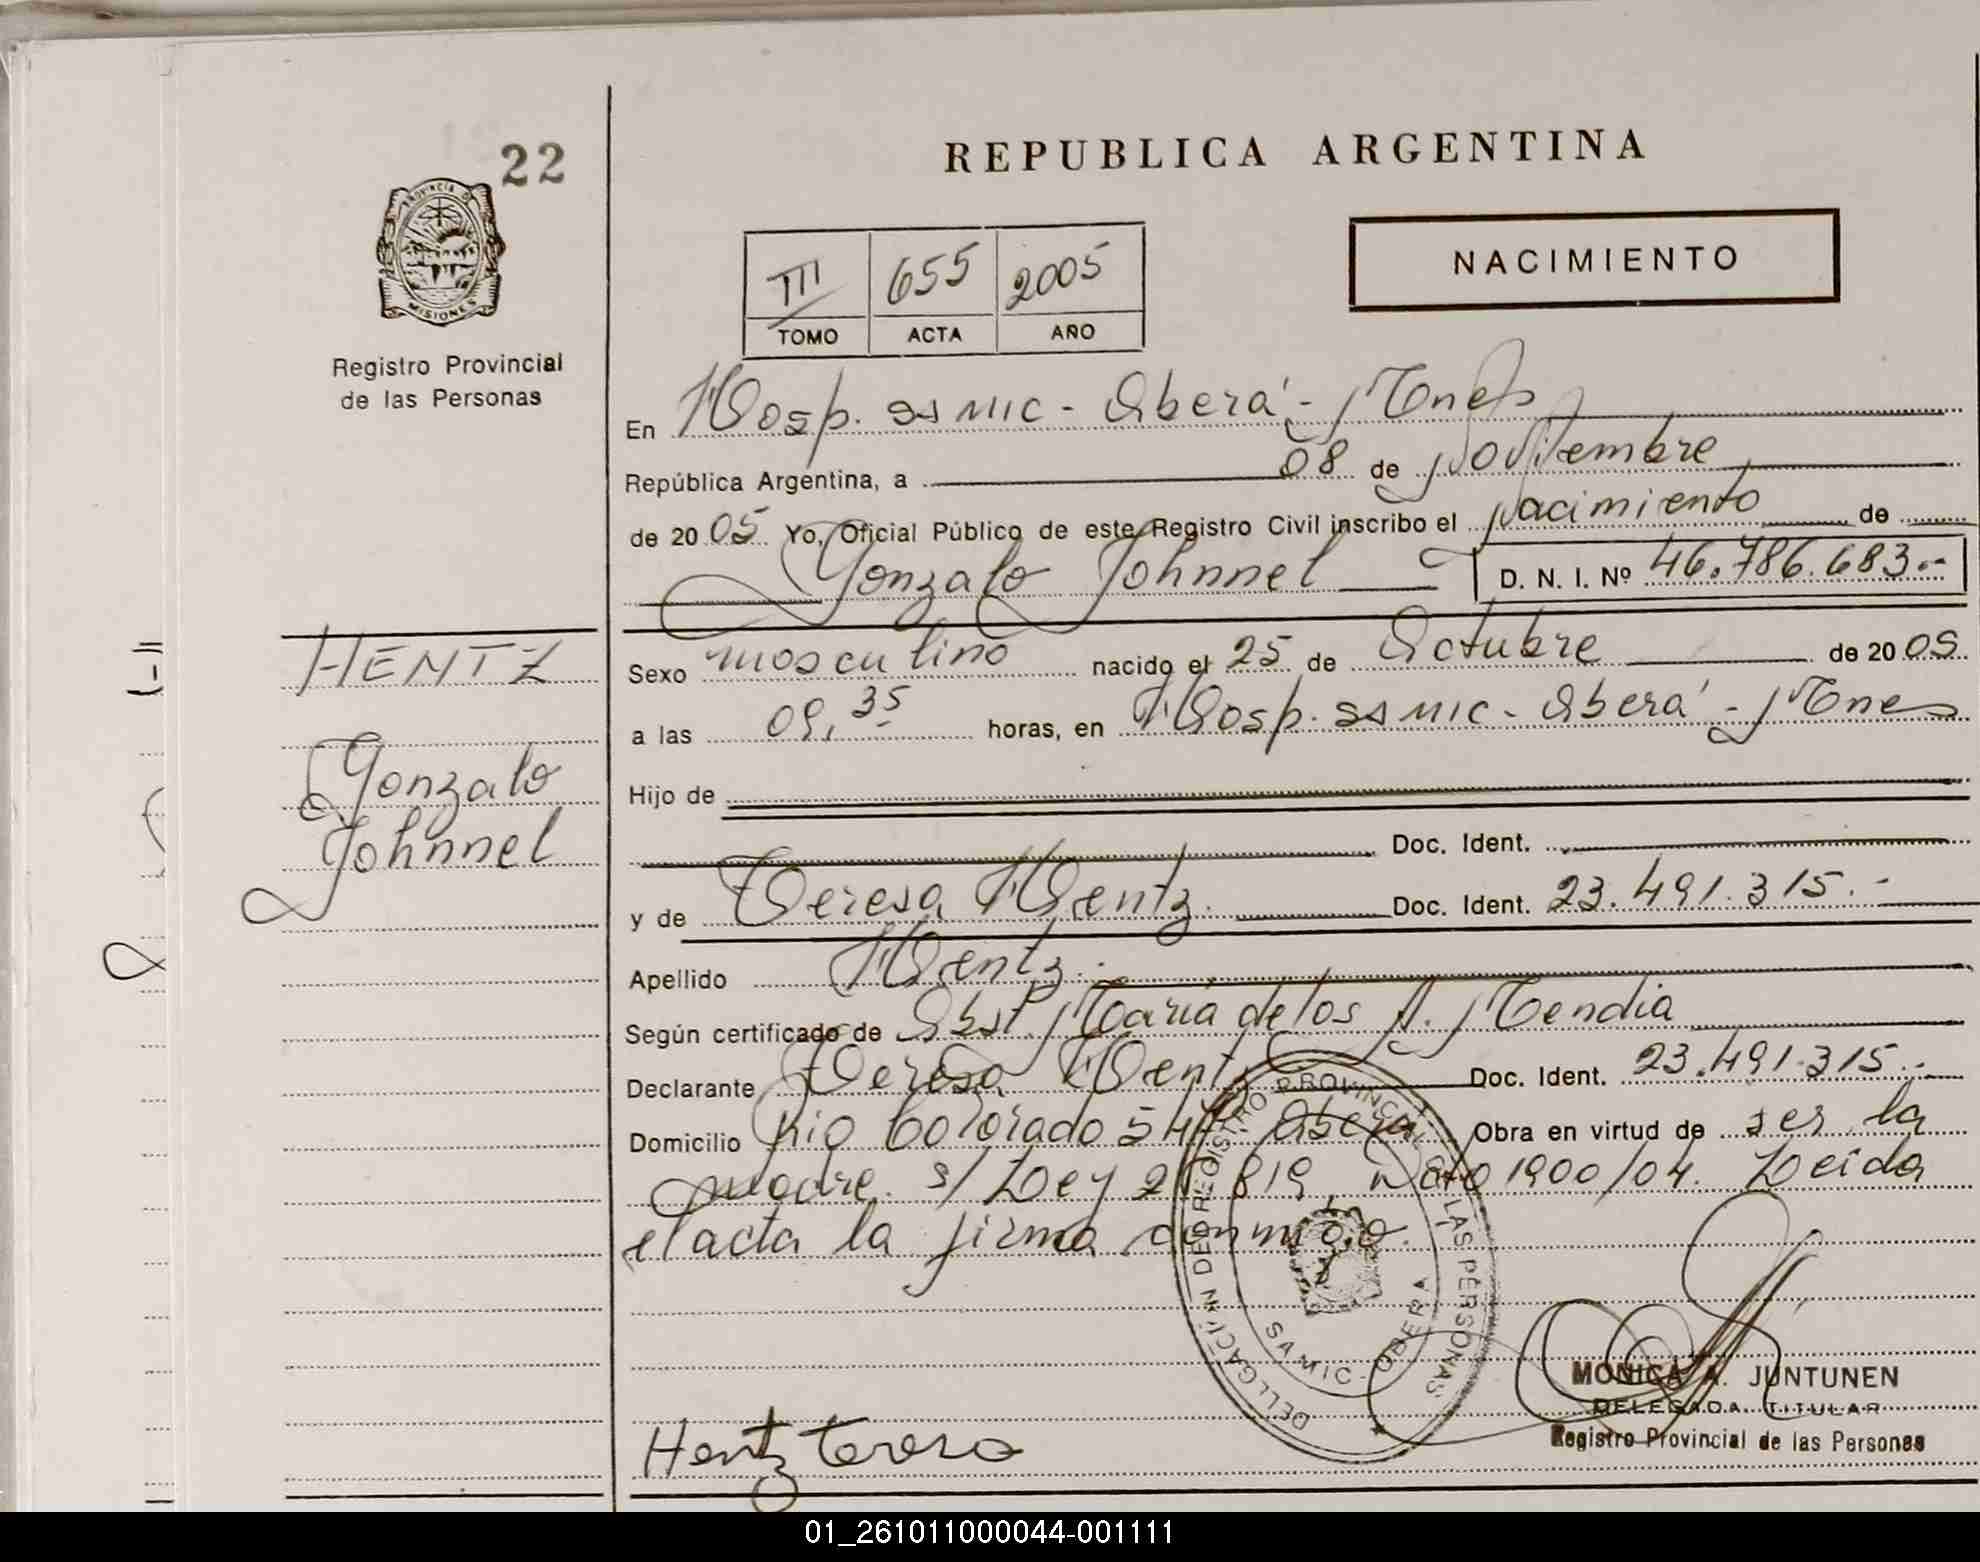 22
PROVINCIA DE
MISIONES
Registro Provincial
de las Personas
REPUBLICA ARGENTINA
NACIMIENTO
III 655 2005
TOMO ACTA AÑO
En Hosp. SAMIC - Oberá - Mnes
República Argentina, a 08 de Noviembre
de 2005 Yo, Oficial Público de este Registro Civil inscribo el Nacimiento de
Gonzalo Johnnel D. N. I. Nº 46.786.683.-
HENTZ
Gonzalo
Johnnel
Sexo masculino nacido el 25 de Octubre de 2005
a las 09,35 horas, en Hosp. SAMIC - Oberá - Mnes
Hijo de
Doc. Ident.
y de Teresa Hentz. Doc. Ident. 23.491.315.-
Apellido Hentz.-
Según certificado de Obst. María de los A. Mendia
Declarante Teresa Hentz Doc. Ident. 23.491.315.-
Domicilio Rio Colorado Oberá Obra en virtud de ser la
madre. s/ Ley 819, 1900/04. Leida
el acta la firma conmigo.
DELEGACIÓN DEL REGISTRO PROVINCIAL DE LAS PERSONAS
SAMIC - OBERA
MONICA A. JUNTUNEN
DELEGADA TITULAR
Registro Provincial de las Personas
Hentz Teresa
01_261011000044-001111